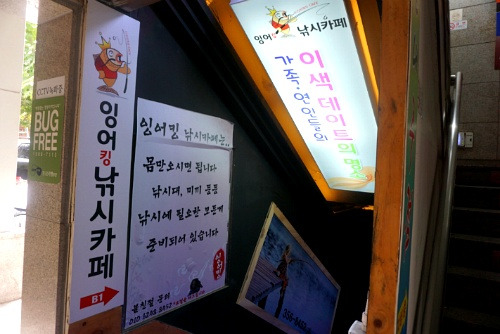 CCTV녹화중
BUG
FREE
잉어킹낚시카페
B1
잉어킹 낚시카페는
몸만오시면 됩니다
낚시대, 미끼 등등
낚시에 필요한 모든게
준비되어 있습니다
잉어킹 낚시카페
가족·연인들의
이색데이트의 명소